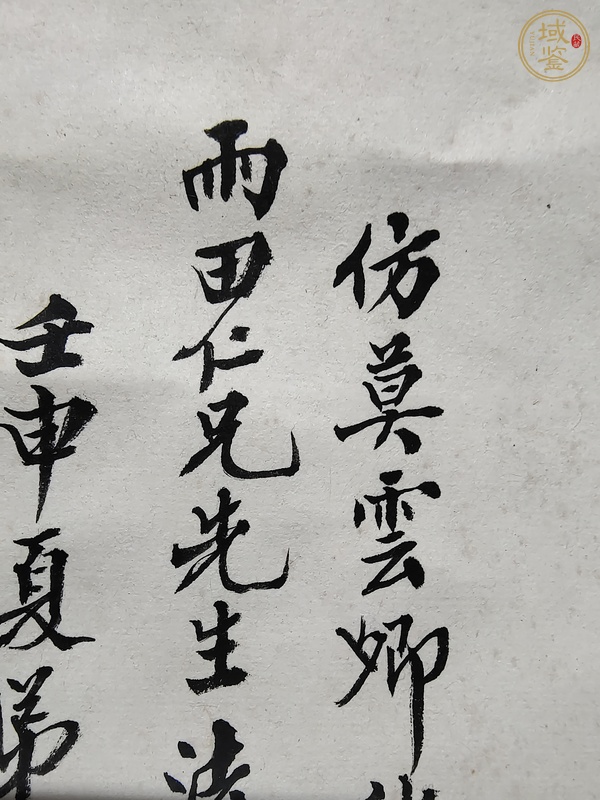 仿莫雲卿
雨田仁兄先生法
壬申夏弟
域鉴